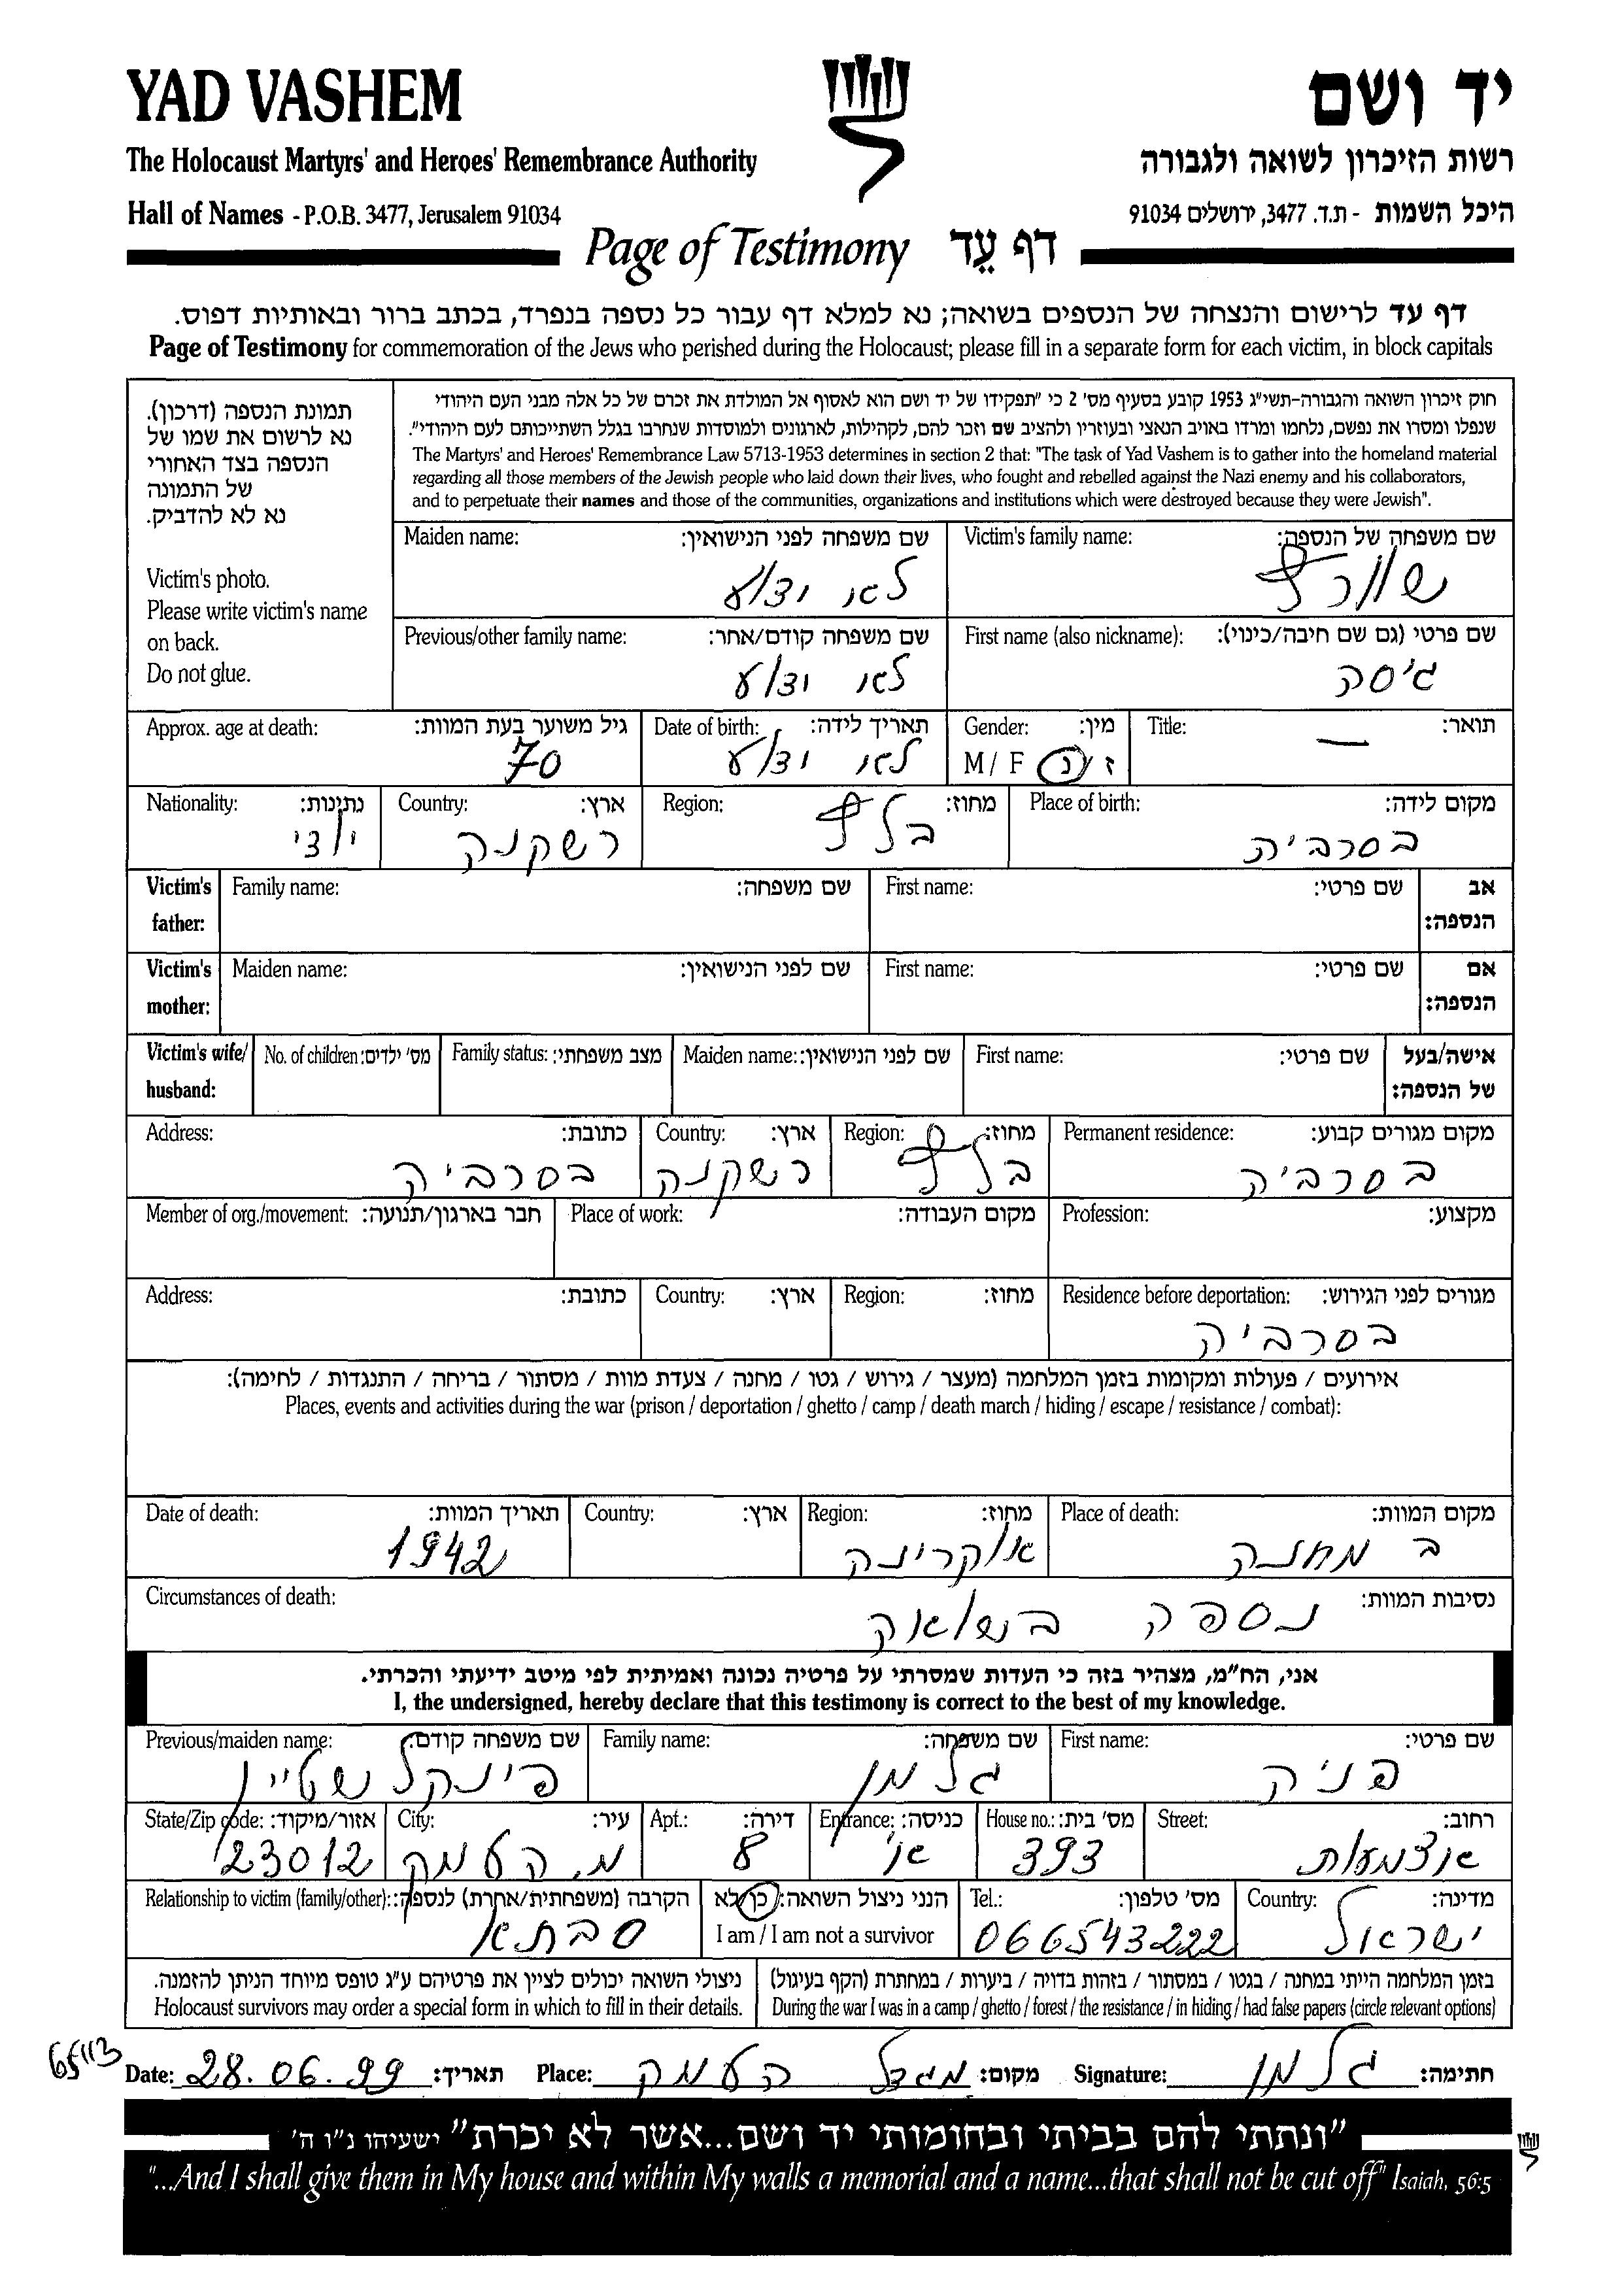 YAD VASHEM
יד ושם
The Holocaust Martyrs' and Heroes' Remembrance Authority
רשות הזיכרון לשואה ולגבורה
Hall of Names - P.O.B. 3477, Jerusalem 91034
היכל השמות - ת.ד. 3477, ירושלים 91034
Page of Testimony דף עֵד
דף עד לרישום והנצחה של הנספים בשואה; נא למלא דף עבור כל נספה בנפרד, בכתב ברור ובאותיות דפוס.
Page of Testimony for commemoration of the Jews who perished during the Holocaust; please fill in a separate form for each victim, in block capitals
תמונת הנספה (דרכון).
נא לרשום את שמו של
הנספה בצד האחורי
של התמונה
נא לא להדביק.
Victim's photo.
Please write victim's name
on back.
Do not glue.
חוק זיכרון השואה והגבורה-תשי"ג 1953 קובע בסעיף מס' 2 כי "תפקידו של יד ושם הוא לאסוף אל המולדת את זכרם של כל אלה מבני העם היהודי
שנפלו ומסרו את נפשם, נלחמו ומרדו באויב הנאצי ובעוזריו ולהציב שם וזכר להם, לקהילות, לארגונים ולמוסדות שנחרבו בגלל השתייכותם לעם היהודי".
The Martyrs' and Heroes' Remembrance Law 5713-1953 determines in section 2 that: "The task of Yad Vashem is to gather into the homeland material
regarding all those members of the Jewish people who laid down their lives, who fought and rebelled against the Nazi enemy and his collaborators,
and to perpetuate their names and those of the communities, organizations and institutions which were destroyed because they were Jewish".
Victim's family name: שם משפחה של הנספה:
שוורץ
Maiden name: שם משפחה לפני הנישואין:
לא ידוע
First name (also nickname): שם פרטי (גם שם חיבה/כינוי):
ג'סה
Previous/other family name: שם משפחה קודם/אחר:
לא ידוע
Title: תואר:
—
Gender: מין:
M / F ז / נ
Date of birth: תאריך לידה:
לא ידוע
Approx. age at death: גיל משוער בעת המוות:
70
Place of birth: מקום לידה:
בסרביה
Region: מחוז:
בלץ
Country: ארץ:
רשקנה
Nationality: נתינות:
Victim's father: אב הנספה:
First name: שם פרטי:
Family name: שם משפחה:
Victim's mother: אם הנספה:
First name: שם פרטי:
Maiden name: שם לפני הנישואין:
Victim's wife/ husband: אישה/בעל של הנספה:
First name: שם פרטי:
Maiden name: שם לפני הנישואין:
Family status: מצב משפחתי:
No. of children: מס' ילדים:
Permanent residence: מקום מגורים קבוע:
בסרביה
Region: מחוז:
בלץ
Country: ארץ:
רשקנה
Address: כתובת:
בסרביה
Profession: מקצוע:
Place of work: מקום העבודה:
Member of org./movement: חבר בארגון/תנועה:
Residence before deportation: מגורים לפני הגירוש:
בסרביה
Region: מחוז:
Country: ארץ:
Address: כתובת:
אירועים / פעולות ומקומות בזמן המלחמה (מעצר / גירוש / גטו / מחנה / צעדת מוות / מסתור / בריחה / התנגדות / לחימה):
Places, events and activities during the war (prison / deportation / ghetto / camp / death march / hiding / escape / resistance / combat):
Place of death: מקום המוות:
ב מחנה
Region: מחוז:
אוקרינה
Country: ארץ:
Date of death: תאריך המוות:
1942
Circumstances of death: נסיבות המוות:
נספה בשואה
אני, הח"מ, מצהיר בזה כי העדות שמסרתי על פרטיה נכונה ואמיתית לפי מיטב ידיעתי והכרתי.
I, the undersigned, hereby declare that this testimony is correct to the best of my knowledge.
First name: שם פרטי:
פניה
Family name: שם משפחה:
גלמן
Previous/maiden name: שם משפחה קודם:
פינקלשטיין
Street: רחוב:
אצמעות
House no.: מס' בית:
393
Entrance: כניסה:
א'
Apt.: דירה:
8
City: עיר:
מ. העמק
State/Zip code: אזור/מיקוד:
23012
Country: מדינה:
ישראל
Tel.: מס' טלפון:
066543222
הנני ניצול השואה: כן/לא
I am / I am not a survivor
Relationship to victim (family/other): הקרבה (משפחתית/אחרת) לנספה:
סבתא
בזמן המלחמה הייתי במחנה / בגטו / במסתור / בזהות בדויה / ביערות / במחתרת (הקף בעיגול)
During the war I was in a camp / ghetto / forest / the resistance / in hiding / had false papers (circle relevant options)
ניצולי השואה יכולים לציין את פרטיהם ע"ג טופס מיוחד הניתן להזמנה.
Holocaust survivors may order a special form in which to fill in their details.
Date: 28.06.99 תאריך: Place: מגדל העמק מקום: Signature: גלמן חתימה:
"ונתתי להם בביתי ובחומותי יד ושם...אשר לא יכרת" ישעיהו נ"ו ה'
"...And I shall give them in My house and within My walls a memorial and a name...that shall not be cut off" Isaiah, 56:5